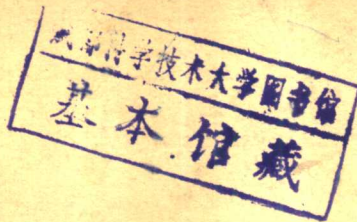 科学技术大学图书馆
基本馆藏